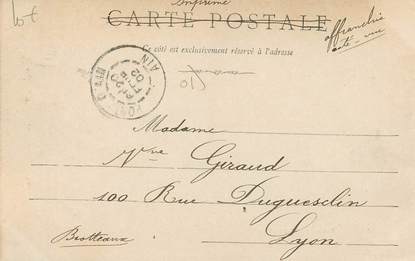 Imprimé
CARTE POSTALE
Ce côté est exclusivement réservé à l'adresse
affranchie
côté vue
AIN
02
Madame
Vve Giraud
100 Rue Duguesclin
Lyon
Brotteaux